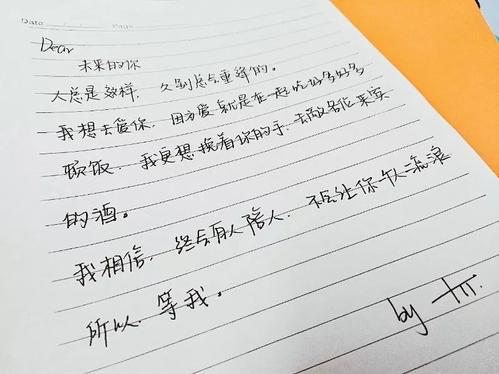 Date
Page
Dear
未来的你
人总是这样,久别总会重逢的。
我想去爱你,因为爱就是在一起吃好多好多
顿饭,我更想挽着你的手,去敬各位来宾
的酒。
我相信,终会有人陪人,不会让你一人流浪
所以,等我。
by